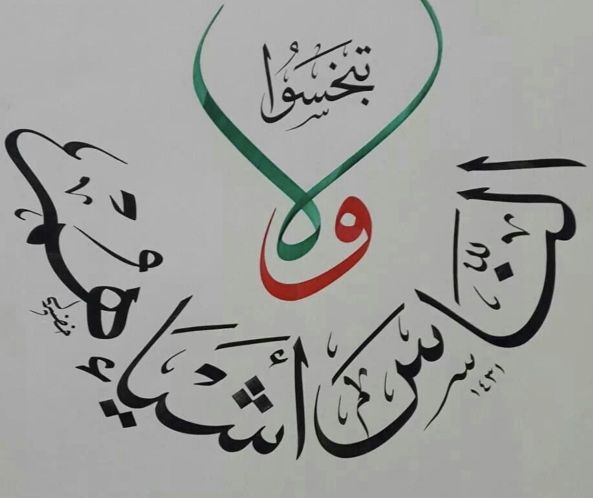 ولا
تبخسوا
الناس أشياءهم
١٤٣١